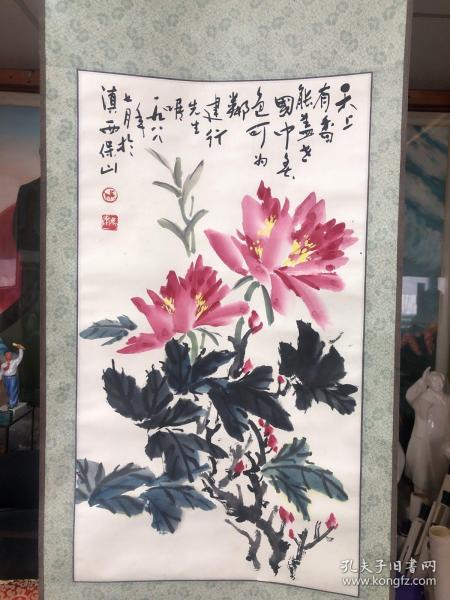 天上
有香
能盖世
國中無
色可为
鄰
建行
先生
嘱
一九八八
年
七月於
滇西保山
孔夫子旧书网
www.kongfz.com